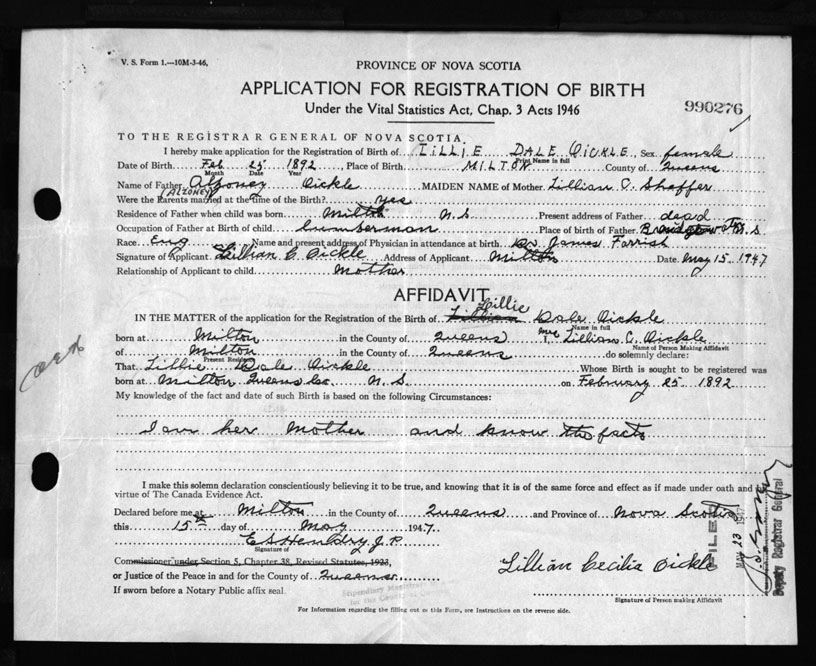 V. S. Form 1.—10M-3-46.
PROVINCE OF NOVA SCOTIA
APPLICATION FOR REGISTRATION OF BIRTH
Under the Vital Statistics Act, Chap. 3 Acts 1946
990276
TO THE REGISTRAR GENERAL OF NOVA SCOTIA,
I hereby make application for the Registration of Birth of LILLIE DALE PICKLE Sex female
Print Name in full
Date of Birth Feb 25 1892 Place of Birth MILTON County of Queens
Month Date Year
Name of Father Alzoney Pickle MAIDEN NAME of Mother Lillian C. Shaffer
(ALZONEY)
Were the Parents married at the time of the Birth? yes
Residence of Father when child was born Milton N.S Present address of Father dead
Occupation of Father at Birth of child Lumberman Place of birth of Father Bridgetown N.S
Race Eng Name and present address of Physician in attendance at birth Dr. James Farrish
Signature of Applicant Lillian C. Pickle Address of Applicant Milton Date May 15, 1947
Relationship of Applicant to child Mother
AFFIDAVIT
Lillie
IN THE MATTER of the application for the Registration of the Birth of Lillian Dale Pickle
Name in full
born at Milton in the County of Queens I, Mrs Lillian C. Pickle
Name of Person Making Affidavit
of Milton in the County of Queens do solemnly declare:
Present Residence
That Lillie Dale Pickle Whose Birth is sought to be registered was
born at Milton Queens Co. N.S. on February 25 1892
My knowledge of the fact and date of such Birth is based on the following Circumstances:
I am her Mother and know the facts
I make this solemn declaration conscientiously believing it to be true, and knowing that it is of the same force and effect as if made under oath and by
virtue of The Canada Evidence Act.
Declared before me at Milton in the County of Queens and Province of Nova Scotia
this 15th day of May 1947.
E S Hendry J.P.
Signature of
Commissioner under Section 5, Chapter 38, Revised Statutes, 1923,
or Justice of the Peace in and for the County of Queens
If sworn before a Notary Public affix seal.
Lillian Cecilia Pickle
Signature of Person making Affidavit
FILED
MAY 23 1947
Deputy Registrar General
For Information regarding the filling out of this Form, see Instructions on the reverse side.